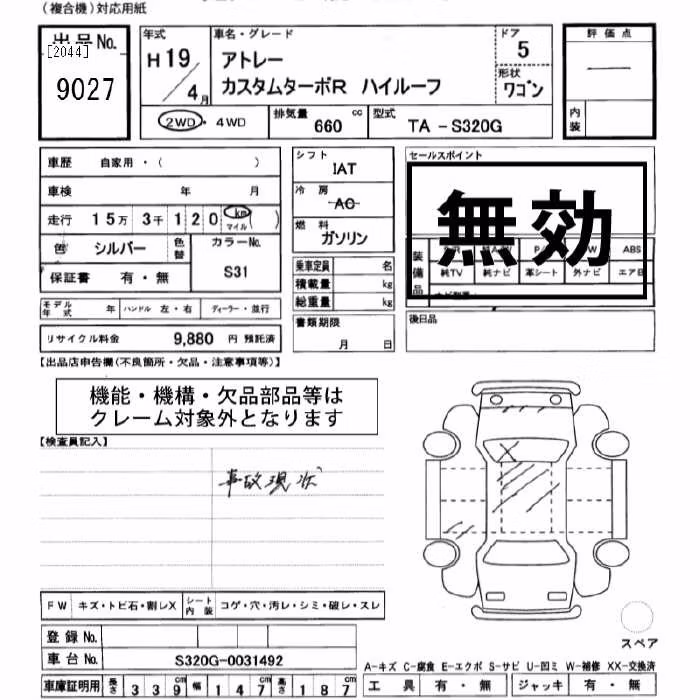 (複合機)対応用紙
出品No.
[2044]
9027
年式
H19/4月
車名・グレード
アトレー
カスタムターボR ハイルーフ
ドア
5
形状
ワゴン
評価点
—
内装
2WD・4WD
排気量
660 cc
型式
TA-S320G
車歴 自家用・( )
車検 年 月
走行 15万 3千 120 km マイル ( )
色 シルバー
色替
カラーNo.
S31
保証書 有・無
モデル年式 年
ハンドル 左・右
ディーラー・並行
リサイクル料金 9,880 円 預託済
シフト
IAT
冷房
AC
燃料
ガソリン
乗車定員 名
積載量 kg
総重量 kg
書類期限
月 日
セールスポイント
無効
装備品
ABS
純TV 純ナビ 革シート 外ナビ エアB
後日品
【出品店申告欄(不良箇所・欠品・注意事項等)】
機能・機構・欠品部品等は
クレーム対象外となります
【検査員記入】
事故現状
FW キズ・トビ石・割レX
シート内装 コゲ・穴・汚レ・シミ・破レ・スレ
登録No.
車台No. S320G-0031492
車庫証明用 長さ 339 幅 147 高さ 187
スペア
A-キズ C-腐食 E-エクボ S-サビ U-凹ミ W-補修 XX-交換済
工具 有・無 ジャッキ 有・無